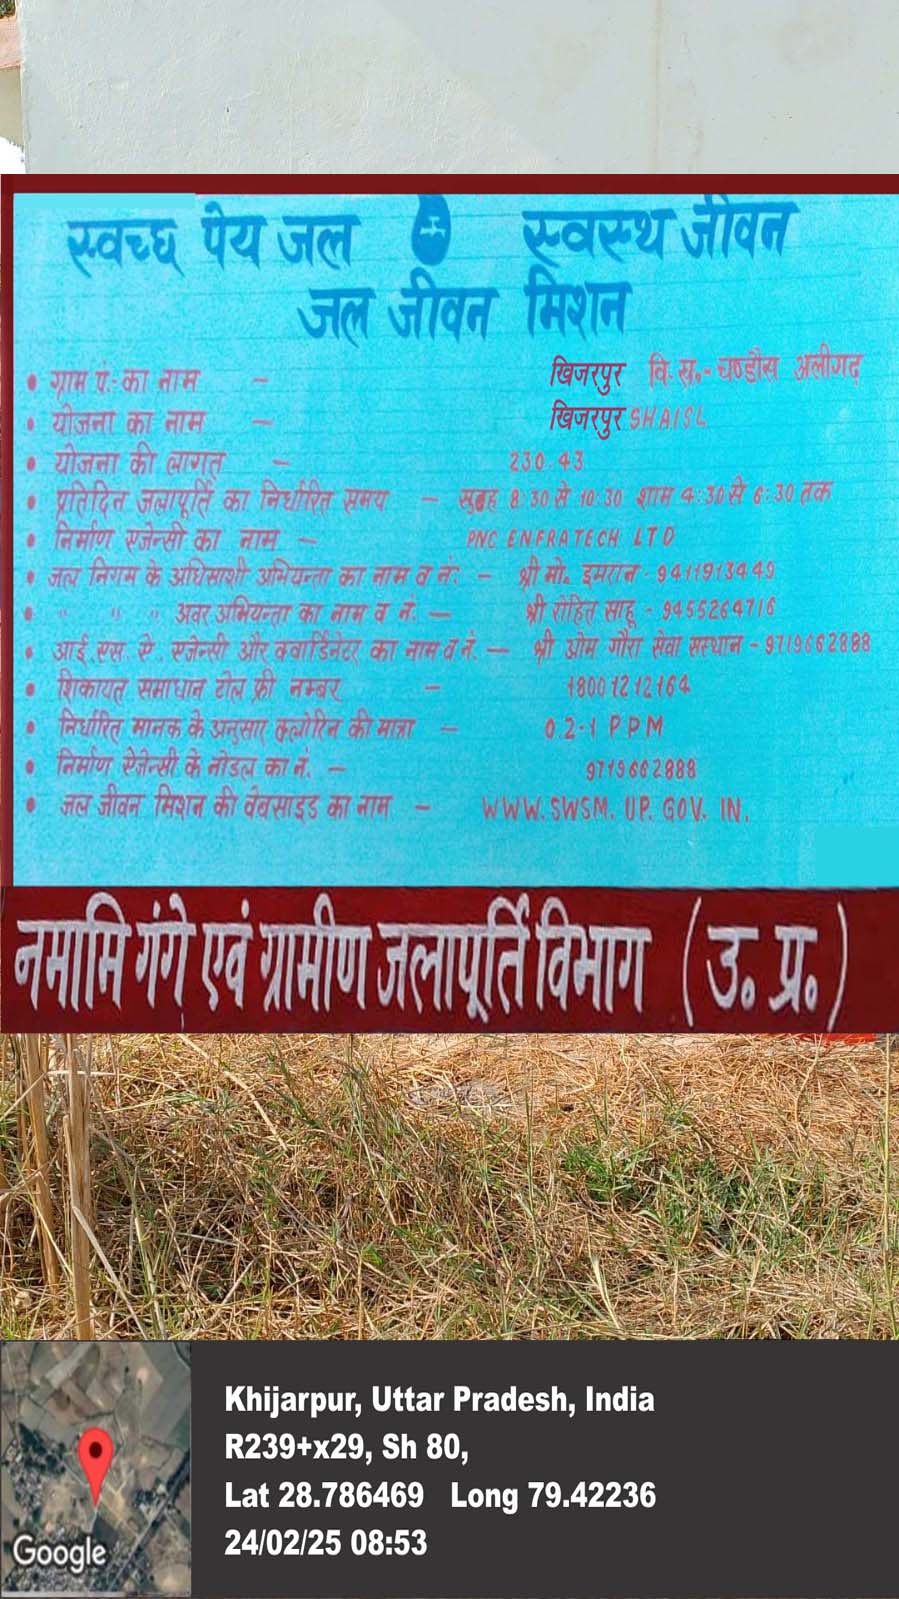 स्वच्छ पेय जल स्वस्थ जीवन
जल जीवन मिशन
• ग्राम पं.- का नाम - खिजरपुर वि. स.- चण्डौस अलीगढ़
• योजना का नाम - खिजरपुर SHAISL
• योजना की लागत - 230.43
• प्रतिदिन जलापूर्ति का निर्धारित समय - सुबह 8:30 से 10:30 शाम 4:30 से 6:30 तक
• निर्माण एजेन्सी का नाम - PNC ENFRATECH LTD
• जल निगम के अधिसाशी अभियन्ता का नाम व नं: - श्री मो. इमरान - 9411913449
• " " " अवर अभियन्ता का नाम व नं. - श्री रोहित साहू - 9455264716
• आई. एस. ऐ. एजेन्सी और क्वार्डिनेटर का नाम व नं. - श्री ओम गौरा सेवा सस्थान - 9719662888
• शिकायत समाधान टोल फ्री नम्बर - 18001212164
• निर्धारित मानक के अनुसार क्लोरिन की मात्रा - 0.2-1 PPM
• निर्माण ऐजेन्सी के नोडल का नं. - 9719662888
• जल जीवन मिशन की वेबसाइड का नाम - WWW.SWSM.UP.GOV.IN.
नमामि गंगे एवं ग्रामीण जलापूर्ति विभाग (उ॰ प्र॰)
Khijarpur, Uttar Pradesh, India
R239+x29, Sh 80,
Lat 28.786469 Long 79.42236
24/02/25 08:53
Google